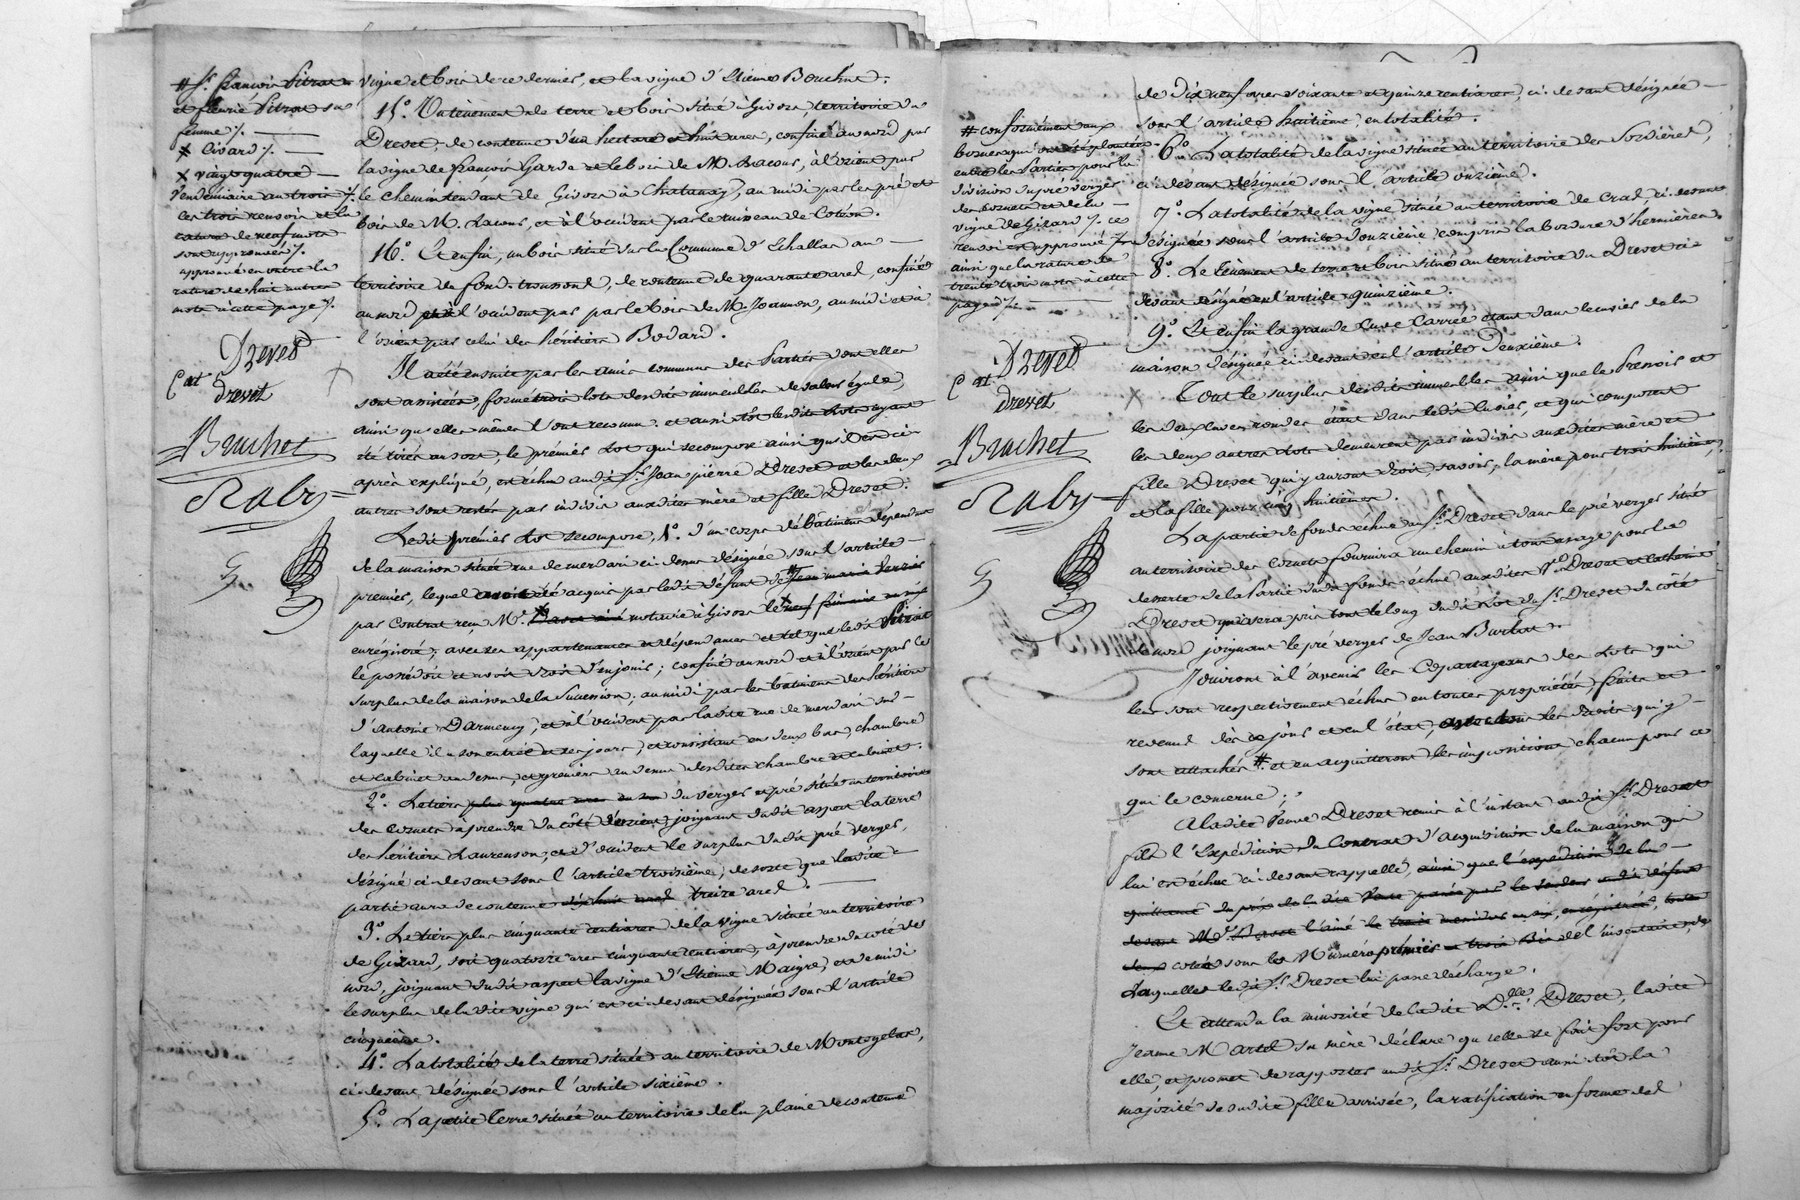 # Sr. françois Pitrat
et fleurie Pitrat sa
femme /. —
# Civard /. —
x vingt quatre —
Vendémiaire an trois /.
ces trois renvois et la
rature de neuf mots
sont approuvés /.
approuvé en outre la
rature de huit autres
mots à cette page /.
Drevet
Cat
Drevet
Bruchet
Raby
vigne et bois de ce dernier, et la vigne d'Etienne Bouchut.
15° Un tènement de terre et bois situé à Givors, territoire du
Drevet, de contenue d'un hectare et huit ares, confiné au nord par
la vigne de françois Garde et le bois de M. Bacons, à l'orient par
le chemin tendant de Givors à Chatanay, au midi par les pré et
bois de M. Bacons, et à l'occident par le ruisseau de Cotéon.
16° Et enfin, un bois situé sur la Commune d'Echallas au —
territoire de fond-troussond, de contenue de quarante ares, confiné
au nord à l'occident par le bois de M. Jeamon, au midi et à
l'orient par celui des héritiers Bodard.
Il a été ensuite par les amis communs des Parties dont elles
sont assistées, formé trois lots desdits immeubles de valeur égale,
ainsi qu'elles mêmes l'ont reconnu et aussitôt lesdits Lots ayant
été tirés au sort, le premier Lot qui se compose ainsi qu'il est ci-
après expliqué, est échu audit Sr. Jean pierre Drevet et les deux
autres sont restés par indivis auxdites mère et fille Drevet.
Ledit premier Lot se compose, 1° d'un corps de bâtiment dépendant
de la maison située rue de merdari ci-dessus désignée sous l'article —
premier, lequel avoit été acquis par ledit défunt de # Jean marie Verzier
par Contrat reçu Me. notaire à Givors le
enregistré, avec ses appartenances et dépendances et tel que ledit Pitrat
le possédoit et avoit droit d'en jouir ; confiné au nord et à l'orient par le
surplus de la maison de la Succession ; au midi par les bâtiments des héritiers
d'Antoine Darmency, et à l'occident par ladite rue de merdari sur —
laquelle il a son entrée et ses jours, et consistant en deux bas, chambre
et cabinet au dessus, et greniers au dessus desdites chambre et cabinet.
2° Le tiers plus quatre ares du verger et pré situé au territoire
des cornets à prendre du côté d'orient, joignant dudit aspect la terre
des héritiers Laurenson, et d'occident le surplus dudit pré verger,
désigné ci-devant sous l'article troisième ; de sorte que ladite —
partie aura de contenue dix huit ares treize ares. —
3° Le tiers plus cinquante centiares de la vigne située au territoire
de Gizard, soit quatorze ares cinquante centiares, à prendre du côté de
nord, joignant dudit aspect la vigne d'Etienne Maigre, et de midi
le surplus de ladite vigne qui est ci-devant désignée sous l'article
cinquième.
4° La totalité de la terre située au territoire de Montogelas,
ci-devant désignée sous l'article sixième.
5° La petite Terre située au territoire de la plaine de contenue
# conformément aux
bornes qui
entre les Parties pour la
division du pré verger
des cornets et de la —
vigne de Gizard /. ce
renvoi est approuvé /.
ainsi que la rature de
trente trois mots à cette
page /. —
Drevet
Cat
Drevet
Bruchet
Raby
de dix neuf ares soixante et quinze centiares, ci-devant désignée —
sous l'article huitième, en totalité.
6° La totalité de la vigne située au territoire des Sordières,
ci-devant désignée sous l'article onzième.
7° La totalité de la vigne située au territoire de Cras, ci-devant
désignée sous l'article douzième, compris la bordure d'hermières.
8° Le Tènement de terre et bois situé au territoire du Drevet ci-
devant désigné en l'article quinzième.
9° Et enfin la grande Cuve Carrée étant dans le cuvier de la
maison désignée ci-devant en l'article deuxième.
Tout le surplus desdits immeubles ainsi que le Pressoir et
les deux cuves rondes étant dans ledit cuvier, et qui composent
les deux autres Lots demeurent par indivis auxdites mère et
fille Drevet qui y auront droit, savoir, la mère pour trois huitièmes,
et la fille pour cinq huitièmes.
La partie de fonds échue au Sr. Drevet dans le pré verger situé
au territoire des Cornets fournira un chemin à tout usage pour la
desserte de la Partie dudit fonds échue auxdites Ve. Drevet et Catherine
Drevet qui sera pris tout le long dudit Lot du Sr. Drevet du côté
de nord joignant le pré verger de Jean Burlat.
Jouiront à l'avenir les Copartageans des Lots qui
leur sont respectivement échus en toutes propriétés, fruits et
revenus dès ce jour et en l'état, avec tous les droits qui y —
sont attachés # et en acquitteront les impositions chacun pour ce
qui le concerne ;
A ladite Veuve Drevet remis à l'instant audit Sr. Drevet
fils l'Expédition du Contrat d'acquisition de la maison qui
lui est échue ci-devant rappellé, ainsi que l'expédition de la —
quittance du prix de ladite Vente passée par le vendeur audit défunt
devant Me. l'ainé le trois messidor an six, enregistrée, toutes
deux cotées sous les Numéro premier et trois de l'inventaire, de
Laquelle ledit Sr. Drevet lui passe décharge.
Et attendu la minorité de ladite Dlle. Drevet, ladite
Jeanne Martel sa mère déclare qu'elle se fait fort pour
elle, et promet de rapporter audit Sr. Drevet aussitôt la
majorité de sadite fille arrivée, la ratification en forme de